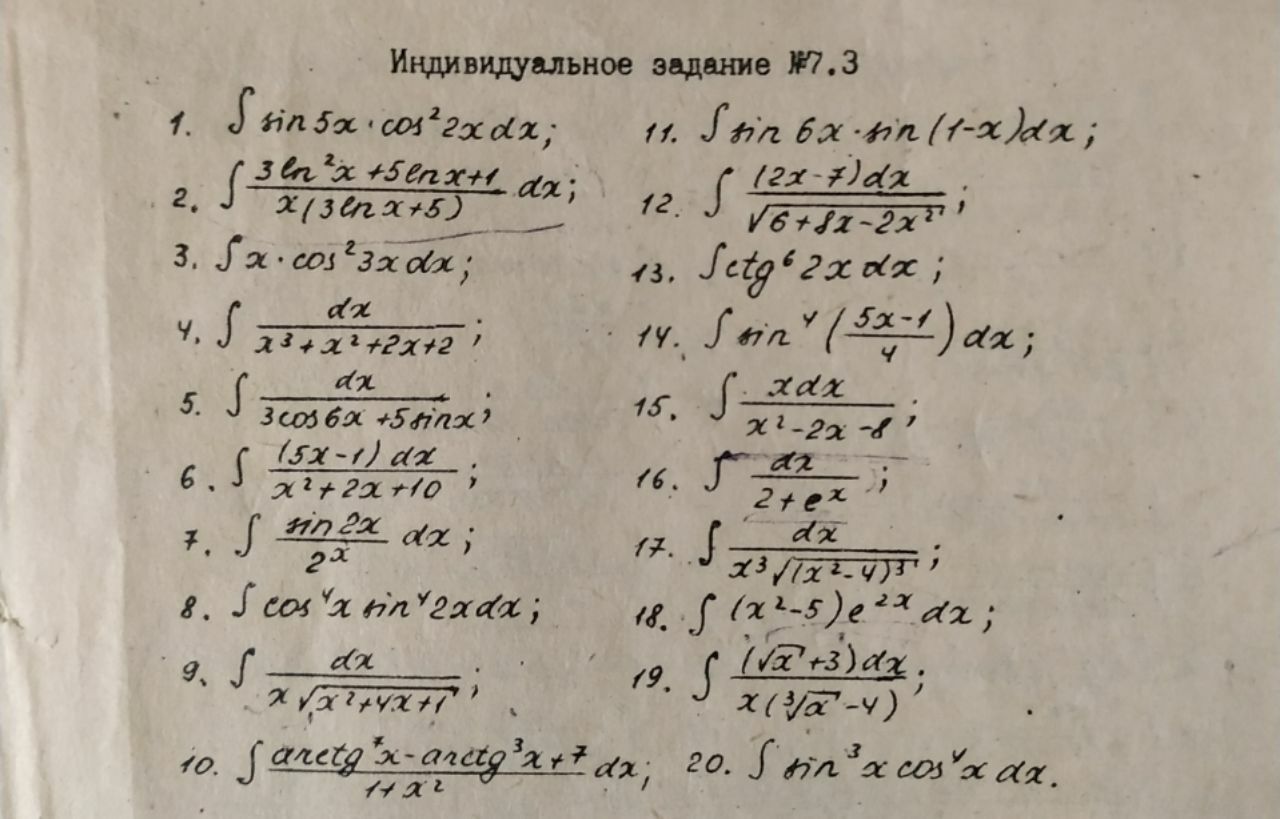 Индивидуальное задание №7.3
1. ∫ sin 5x · cos² 2x dx;
2. ∫ (3 ln² x + 5 ln x + 1) / (x(3 ln x + 5)) dx;
3. ∫ x · cos² 3x dx;
4. ∫ dx / (x³ + x² + 2x + 2);
5. ∫ dx / (3 cos 6x + 5 sin x);
6. ∫ (5x - 1) dx / (x² + 2x + 10);
7. ∫ sin 2x / 2ˣ dx;
8. ∫ cos⁴ x sin⁴ 2x dx;
9. ∫ dx / (x √(x² + 4x + 1));
10. ∫ (arctg⁷ x - arctg³ x + 7) / (1 + x²) dx;
11. ∫ sin 6x · sin (1 - x) dx;
12. ∫ (2x - 7) dx / √(6 + 8x - 2x²);
13. ∫ ctg⁶ 2x dx;
14. ∫ sin⁴ ((5x - 1) / 4) dx;
15. ∫ x dx / (x² - 2x - 8);
16. ∫ dx / (2 + eˣ);
17. ∫ dx / (x³ √((x² - 4)³));
18. ∫ (x² - 5) e²ˣ dx;
19. ∫ (√x + 3) dx / (x(³√x - 4));
20. ∫ sin³ x cos⁴ x dx.